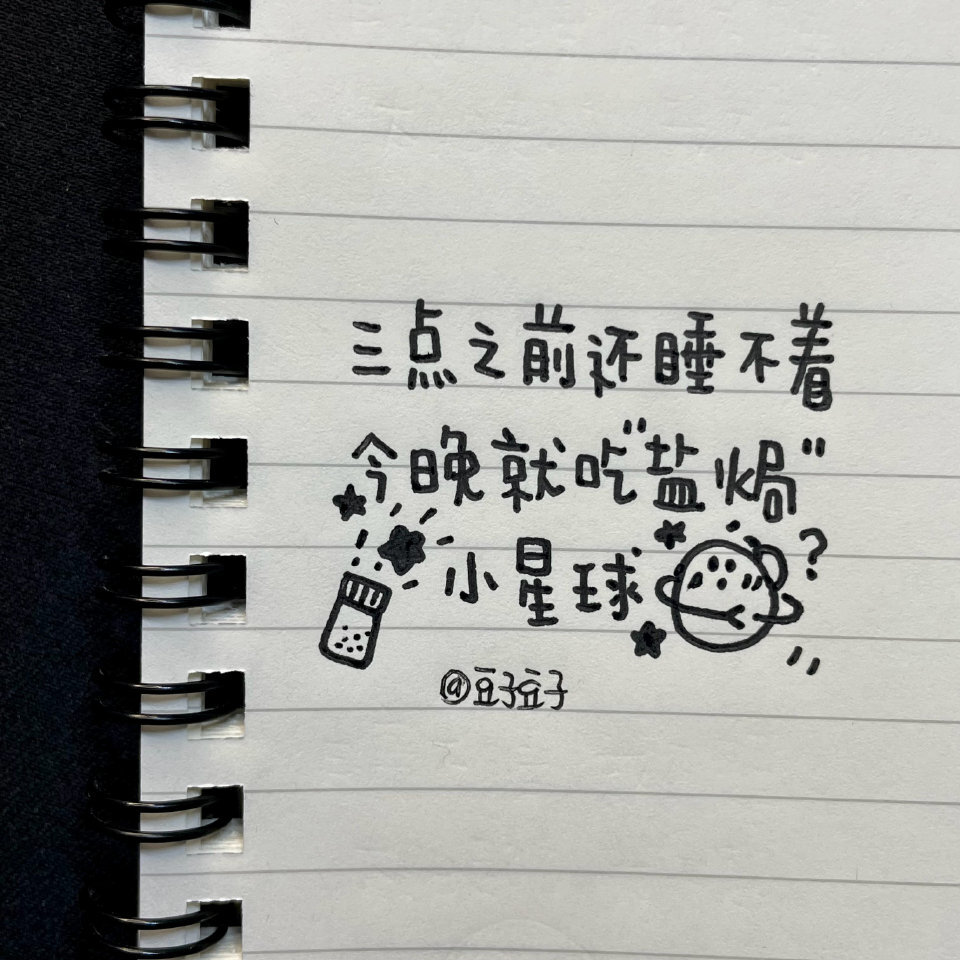 三点之前还睡不着
今晚就吃"盐焗"
小星球
?
@豆子豆子